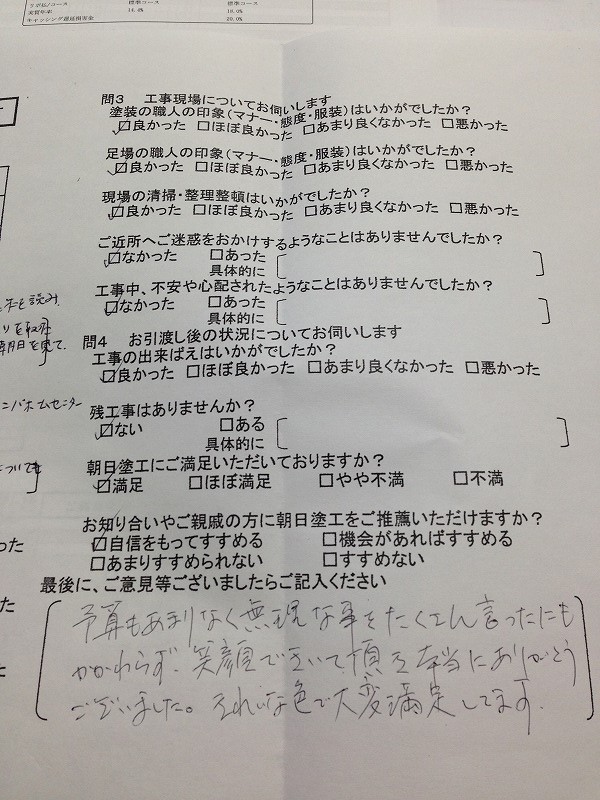 リボ払/コース 標準コース 標準コース
実質年率 14.4% 18.0%
キャッシング遅延損害金 20.0%
問3 工事現場についてお伺いします
塗装の職人の印象(マナー・態度・服装)はいかがでしたか?
☑良かった □ほぼ良かった □あまり良くなかった □悪かった
足場の職人の印象(マナー・態度・服装)はいかがでしたか?
☑良かった □ほぼ良かった □あまり良くなかった □悪かった
現場の清掃・整理整頓はいかがでしたか?
☑良かった □ほぼ良かった □あまり良くなかった □悪かった
ご近所へご迷惑をおかけするようなことはありませんでしたか?
☑なかった □あった
具体的に
工事中、不安や心配されたようなことはありませんでしたか?
☑なかった □あった
具体的に
を読み
朝日を見て、
問4 お引渡し後の状況についてお伺いします
工事の出来ばえはいかがでしたか?
☑良かった □ほぼ良かった □あまり良くなかった □悪かった
ホームセンター
残工事はありませんか?
☑ない □ある
具体的に
朝日塗工にご満足いただいておりますか?
☑満足 □ほぼ満足 □やや不満 □不満
お知り合いやご親戚の方に朝日塗工をご推薦いただけますか?
☑自信をもってすすめる □機会があればすすめる
□あまりすすめられない □すすめない
った
た
最後に、ご意見等ございましたらご記入ください
予算もあまりなく無理な事をたくさん言ったにも
かかわらず、笑顔できいて頂き本当にありがとう
ございました。きれいな色で大変満足してます。